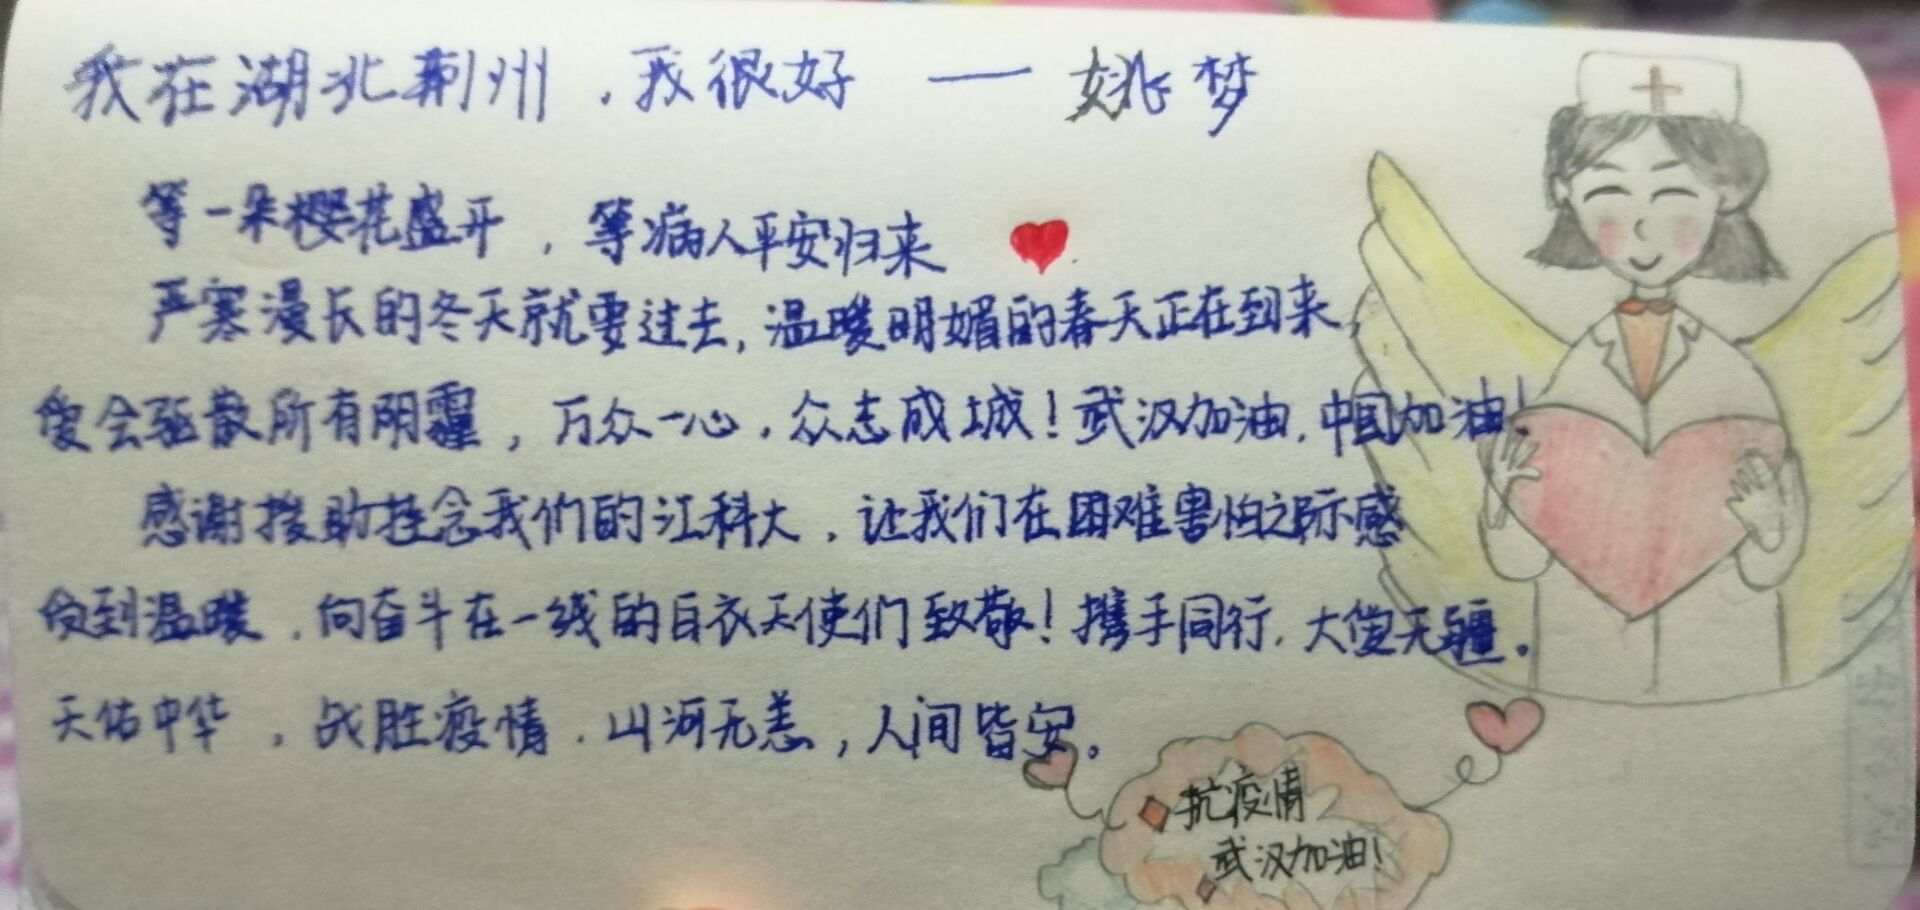 我在湖北荆州，我很好 —— 姚梦
等一朵樱花盛开，等病人平安归来
严寒漫长的冬天就要过去，温暖明媚的春天正在到来，
爱会驱散所有阴霾，万众一心，众志成城！武汉加油，中国加油！
感谢援助挂念我们的江科大，让我们在困难害怕之际感
受到温暖，向奋斗在一线的白衣天使们致敬！携手同行，大爱无疆。
天佑中华，战胜疫情，山河无恙，人间皆安。
抗疫情
武汉加油！